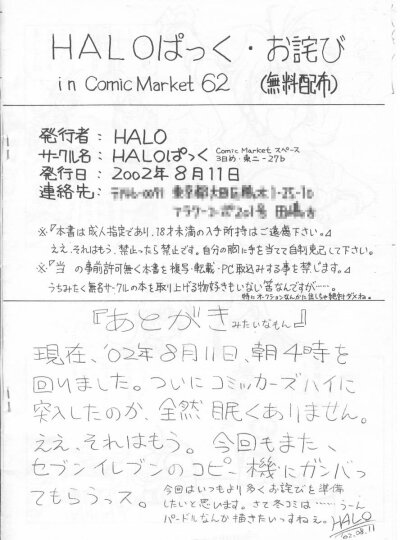 HALOぱっく・お詫び
in Comic Market 62 (無料配布)
発行者: HALO
サークル名: HALOぱっく Comic Market スペース
3日め・東ニ-27b
発行日: 2002年8月11日
連絡先:
※『本書は成人指定であり、18才未満の入手所持はご遠慮下さい。』
ええ、それはもう、禁止ったら禁止です。自分の胸に手を当てて自制見己して下さい。
※『当 の事前許可無く本書を複写・転載・PC取込みする事を禁じます。』
うちみたく無名サークルの本を取り上げる物好きもいない筈なんですが……。
特にオークションなんかに出しちゃ絶対ダメね。
『あとがきみたいなモん』
現在、'02年8月11日、朝4時を
回りました。ついにコミッカーズハイに
突入したのか、全然眠くありません。
ええ、それはもう。今回もまた、
セブンイレブンのコピー機にガンバっ
てもらうっス。
今回はいつもより多くお詫びを準備
したいと思います。さて冬コミは……うーん
パードルなんか描きたいっすねぇ。
HALO
'02.08.11